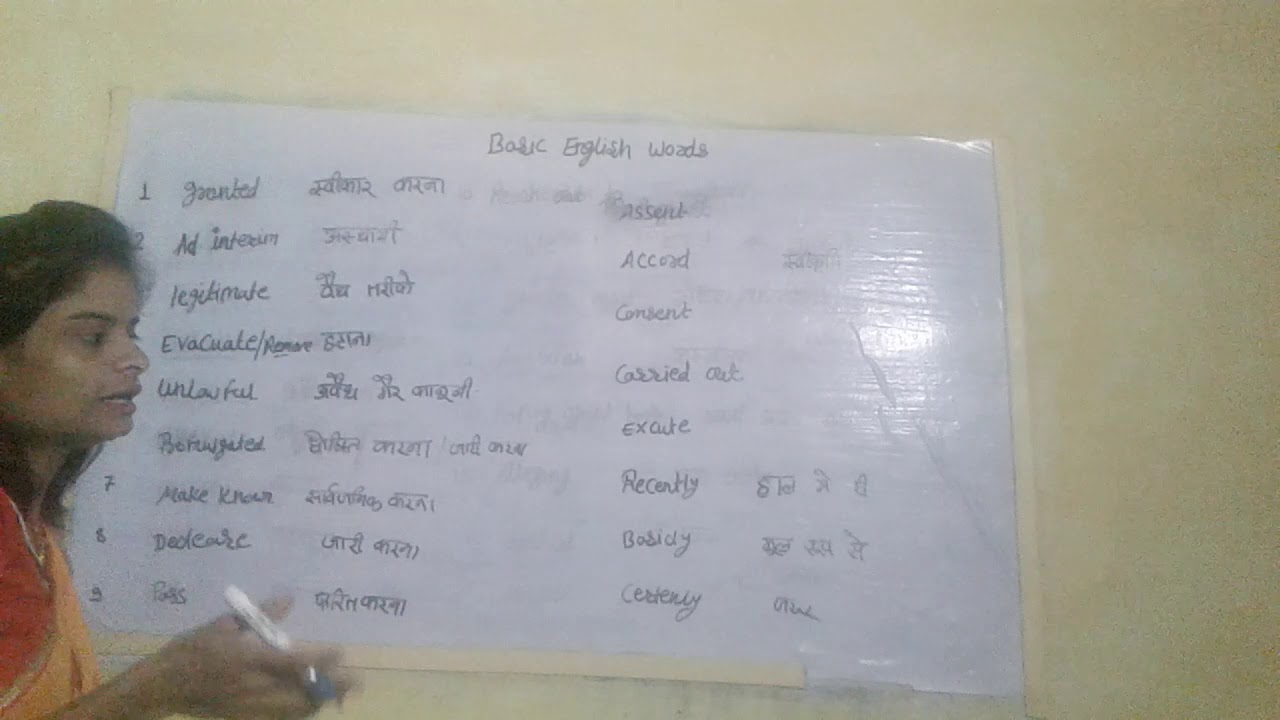 Basic English Words
1 granted स्वीकार करना
2 Ad interim अस्थायी
legitimate वैध तरीके
Evacuate/Remove हटाना
Unlawful अवैध गैर कानूनी
करना / जारी करना
7 Make known सार्वजनिक करना
8 जारी करना
9 Pass पारित करना
Assent
Accord स्वीकृति
Consent
Carried out
Excute
Recently हाल मे ही
रूप से